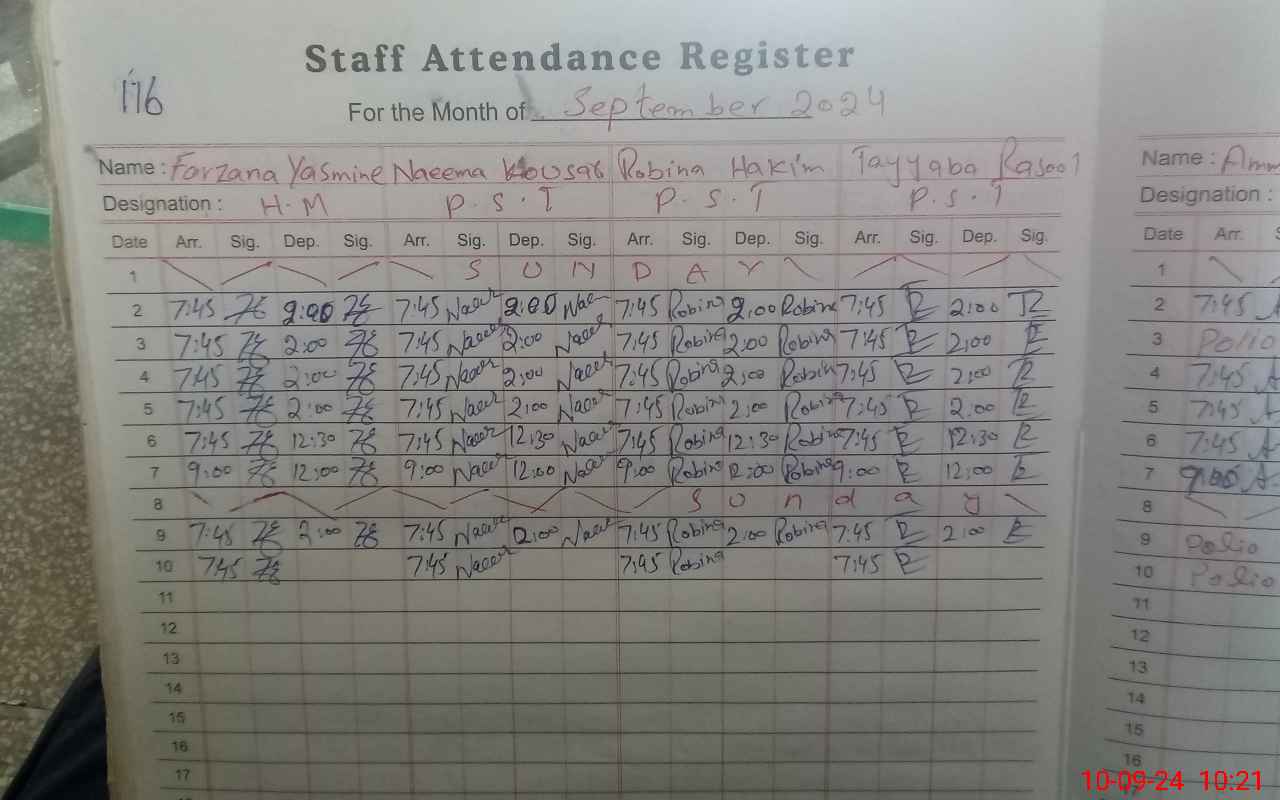 Staff Attendance Register
176
For the Month of September 2024
Name : Farzana Yasmine Naeema Kousar Robina Hakim Tayyaba Rasool Name :
Designation : H.M P.S.T P.S.T P.S.T Designation :
Date Arr. Sig. Dep. Sig. Arr. Sig. Dep. Sig. Arr. Sig. Dep. Sig. Arr. Sig. Dep. Sig. Date Arr.
1 SUNDAY 1
2 7:45 2:00 7:45 Naeem 2:00 7:45 Robina 2:00 Robina 7:45 2:00 2 7:45
3 7:45 2:00 7:45 Naeem 2:00 Naeem 7:45 Robina 2:00 Robina 7:45 2:00 3 Polio
4 7:45 2:00 7:45 Naeem 2:00 Naeem 7:45 Robina 2:00 Robina 7:45 2:00 4 7:45
5 7:45 2:00 7:45 Naeem 2:00 Naeem 7:45 Robina 2:00 Robina 7:45 2:00 5 7:45
6 7:45 12:30 7:45 Naeem 12:30 Naeem 7:45 Robina 12:30 Robina 7:45 12:30 6 7:45
7 9:00 12:00 9:00 Naeem 12:00 Naeem 9:00 Robina 12:00 Robina 9:00 12:00 7 9:00
8 Sunday 8
9 7:45 2:00 7:45 Naeem 2:00 Naeem 7:45 Robina 2:00 Robina 7:45 2:00 9 Polio
10 7:45 7:45 Naeem 7:45 Robina 7:45 10 Polio
11 11
12 12
13 13
14 14
15 15
16 16
17
10-09-24 10:21